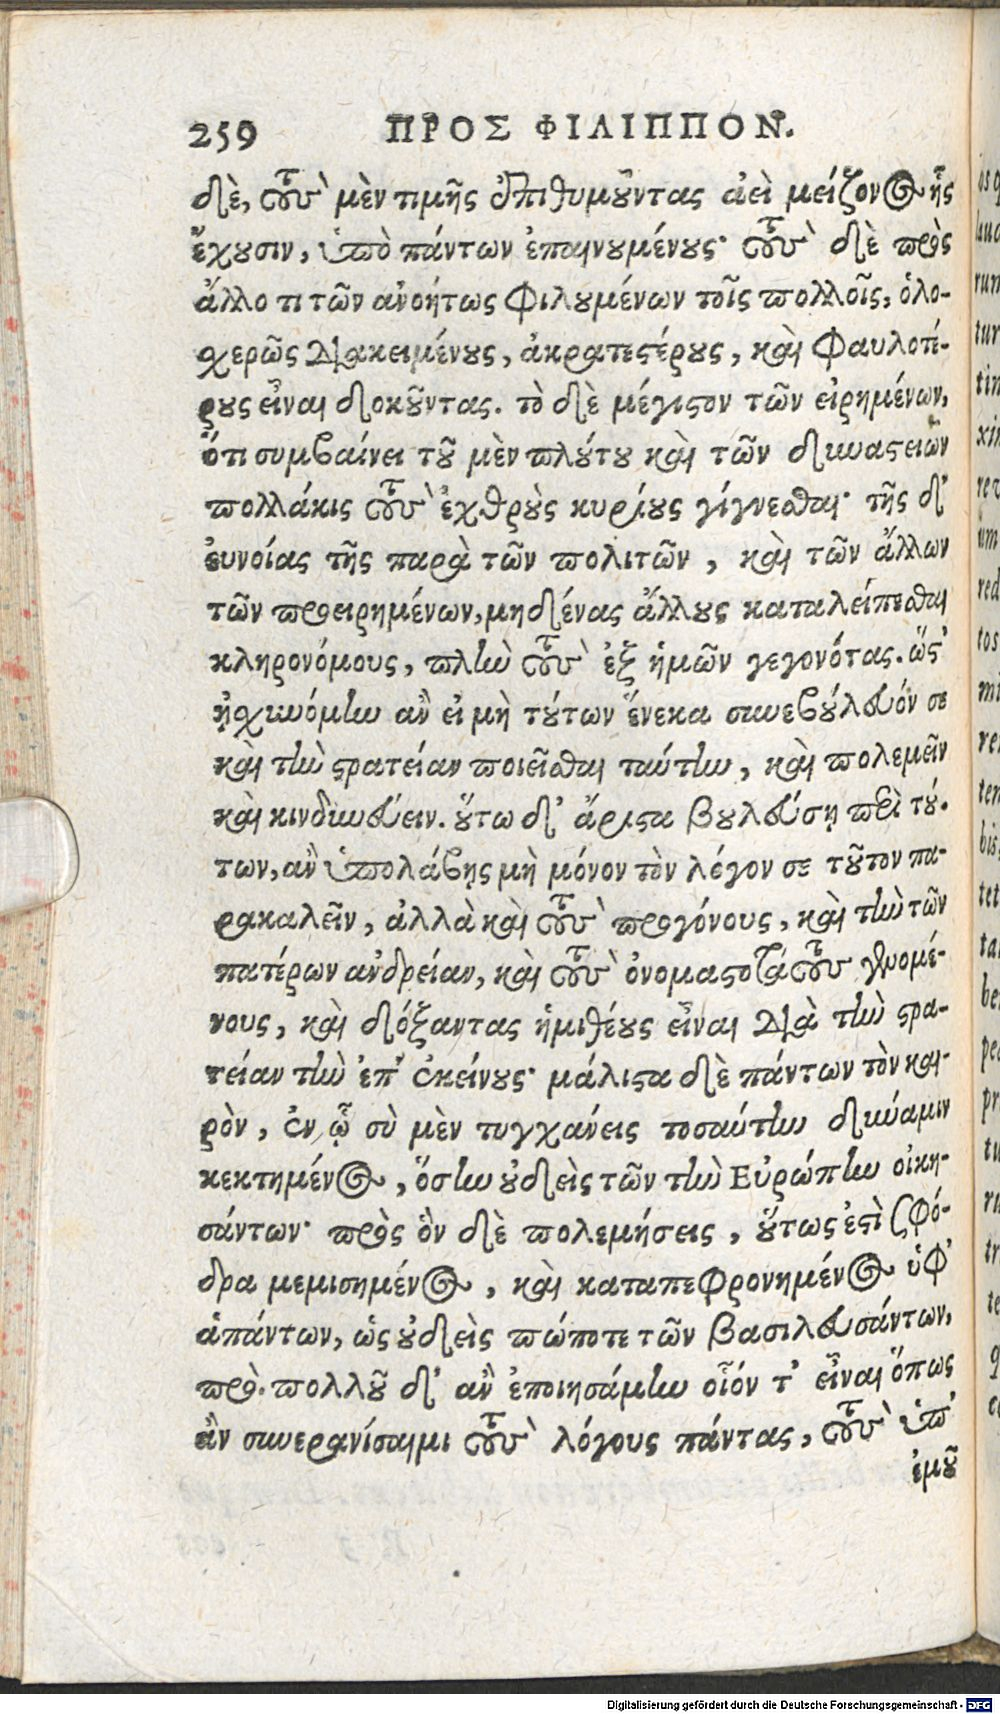 259 ΠΡΟΣ ΦΙΛΙΠΠΟΝ.
δὲ, τοὺς μὲν τιμῆς ἐπιθυμοῦντας ἀεὶ μείζονος ἧς
ἔχουσιν, ὑπὸ πάντων ἐπαινουμένους· τοὺς δὲ πρὸς
ἄλλο τι τῶν ἀνοήτως φιλουμένων τοῖς πολλοῖς, ὁλο-
χερῶς διακειμένους, ἀκρατεστέρους, καὶ φαυλοτέ-
ρους εἶναι δοκοῦντας. τὸ δὲ μέγιστον τῶν εἰρημένων,
ὅτι συμβαίνει τοῦ μὲν πλούτου καὶ τῶν δυναστειῶν
πολλάκις τοὺς ἐχθροὺς κυρίους γίγνεσθαι· τῆς δ'
εὐνοίας τῆς παρὰ τῶν πολιτῶν, καὶ τῶν ἄλλων
τῶν προειρημένων, μηδένας ἄλλους καταλείπεσθαι
κληρονόμους, πλὴν τοὺς ἐξ ἡμῶν γεγονότας. ὥστ'
ᾐσχυνόμην ἂν εἰ μὴ τούτων ἕνεκα συνεβούλευόν σε
καὶ τὴν στρατείαν ποιεῖσθαι ταύτην, καὶ πολεμεῖν
καὶ κινδυνεύειν. οὕτω δ' ἄριστα βουλεύσῃ περὶ τού-
των, ἂν ὑπολάβῃς μὴ μόνον τὸν λόγον σε τοῦτον πα-
ρακαλεῖν, ἀλλὰ καὶ τοὺς προγόνους, καὶ τὴν τῶν
πατέρων ἀνδρείαν, καὶ τοὺς ὀνομαστοτάτους γενομέ-
νους, καὶ δόξαντας ἡμιθέους εἶναι διὰ τὴν στρα-
τείαν τὴν ἐπ' ἐκείνους· μάλιστα δὲ πάντων τὸν και-
ρὸν, ἐν ᾧ σὺ μὲν τυγχάνεις τοσαύτην δύναμιν
κεκτημένος, ὅσην οὐδεὶς τῶν τὴν Εὐρώπην οἰκη-
σάντων· πρὸς ὃν δὲ πολεμήσεις, οὕτως ἐστὶ σφό-
δρα μεμισημένος, καὶ καταπεφρονημένος ὑφ'
ἁπάντων, ὡς οὐδεὶς πώποτε τῶν βασιλευσάντων,
πρὸ. πολλοῦ δ' ἂν ἐποιησάμην οἷόν τ' εἶναι ὅπως
ἂν συνερανίσαιμι τοὺς λόγους πάντας, τοὺς ὑπ'
ἐμοῦ
Digitalisierung gefördert durch die Deutsche Forschungsgemeinschaft - DFG